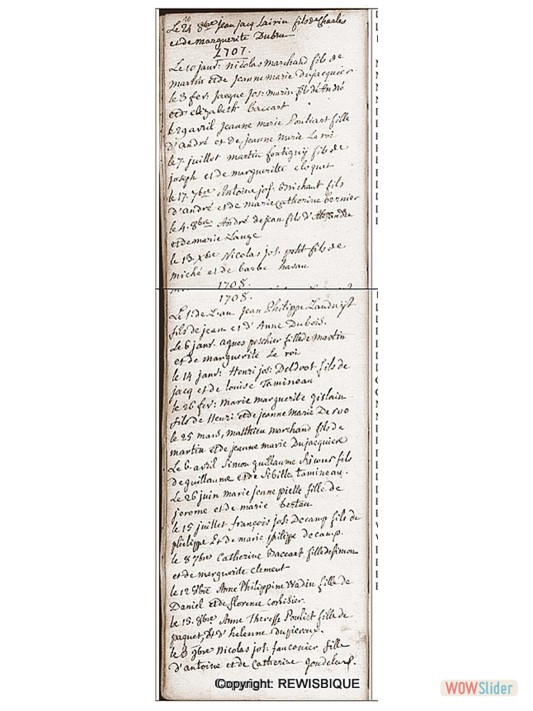 Le 24 8bre jean jacq Lairin fils de Charles
et de marguerite Dubru
1707.
Le 10 janv: Nicolas marchand fils de
martin et de jeanne marie Dujacquier
le 3 fev: jacque jos: marin fils d'André
et d'elizabeth baccart
le 29 avril jeanne marie Pouliart fille
d'andré et de jeanne marie Le roi
le 7 juillet martin fontigny fils de
joseph et de margueritte cloquet
le 17 7bre Antoine jos: fils
d'andré et de marie Catherine bernier
le 4 8bre André dejean fils d'Alexandre
et de marie Lange
le 13 xbre Nicolas jos: petit fils de
miché et de barbe havau
1708.
1708.
Le 1 de jean Philippe
fils de jean et d'Anne Dubois.
Le 6 janv. agnes peschier fille de Martin
et de marguerite Le roi
le 14 janv: Henri jos: Deldoot fils de
jacq et de louise Tamineau
le 26 fev: Marie marguerite gislain
fils de Henri et de jeanne marie De roo
le 25 mars, matthieu marchand fils de
martin et de jeanne marie Dujacquier
Le 6 avril Simon guillaume fils
de guillaume et de Sibille tamineau.
Le 26 juin marie jenne pielle fille de
jerome et de marie bertau
le 15 juillet françois jos: Decamp fils de
philippe et de marie philippe decamp.
le 8 7bre Catherine Baccart fille de simon
et de marguerite clement
le 12 8bre Anne Philippine Wadin fille de
Daniel et de florence corbisier.
le 15. 8bre Anne Theresse Pouliet fille de
et d'helenne
le 3 9bre Nicolas jos: fauconier fille
d'antoine et de Catherine
Copyright: REWISBIQUE
WOWSlider